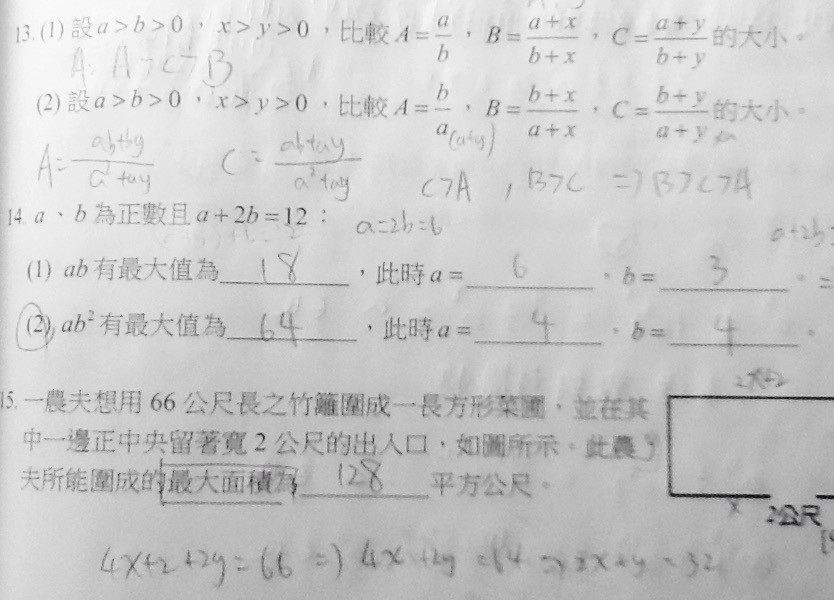 13. (1) 設 a > b > 0,x > y > 0,比較 A = a/b,B = (a+x)/(b+x),C = (a+y)/(b+y) 的大小。
A: A > C > B
(2) 設 a > b > 0,x > y > 0,比較 A = b/a,B = (b+x)/(a+x),C = (b+y)/(a+y) 的大小。
(a+y)
A = (ab+by)/(a²+ay) C = (ab+ay)/(a²+ay) C>A , B>C => B>C>A
14. a、b 為正數且 a + 2b = 12: a=2b=6
(1) ab 有最大值為 18,此時 a = 6,b = 3。
(2) ab² 有最大值為 64,此時 a = 4,b = 4。
15. 一農夫想用 66 公尺長之竹籬圍成一長方形菜圃,並在其
中一邊正中央留著寬 2 公尺的出入口,如圖所示。此農
夫所能圍成的最大面積為 128 平方公尺。
2x+2
y
x
2公尺
4x+2+2y=66 => 4x+2y=64 => 2x+y=32